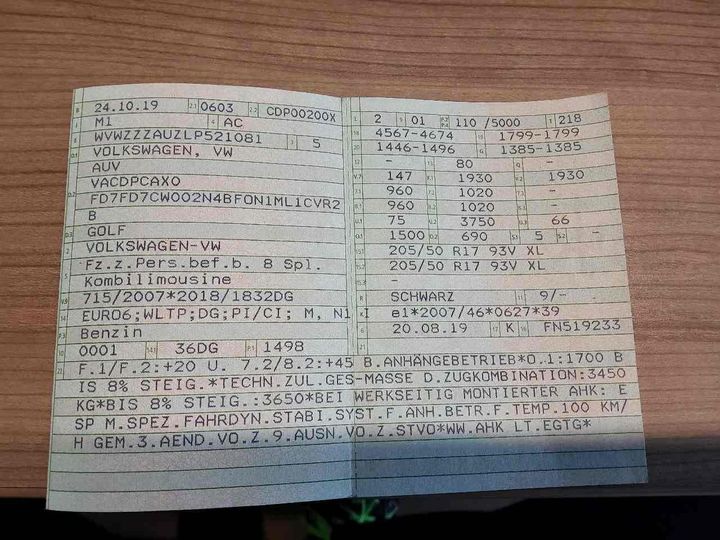 24.10.19 0603 CDP00200X
M1 AC
WVWZZZAUZLP521081 5
VOLKSWAGEN, VW
AUV
VACDPCAX0
FD7FD7CW002N4BFON1ML1CVR2
B
GOLF
VOLKSWAGEN-VW
Fz.z.Pers.bef.b. 8 Spl.
Kombilimousine
715/2007*2018/1832DG
EURO6;WLTP;DG;PI/CI; M, N1 I
Benzin
0001 36DG 1498
2 01 110 /5000 218
4567-4674 1799-1799
1446-1496 1385-1385
- 80 -
147 1930 1930
960 1020 -
960 1020 -
75 3750 66
1500 690 5 -
205/50 R17 93V XL
205/50 R17 93V XL
-
SCHWARZ 9/-
e1*2007/46*0627*39
20.08.19 K FN519233
F.1/F.2:+20 U. 7.2/8.2:+45 B.ANHÄNGEBETRIEB*O.1:1700 B
IS 8% STEIG.*TECHN.ZUL.GES-MASSE D.ZUGKOMBINATION:3450
KG*BIS 8% STEIG.:3650*BEI WERKSEITIG MONTIERTER AHK: E
SP M.SPEZ.FAHRDYN.STABI.SYST.F.ANH.BETR.F.TEMP.100 KM/
H GEM.3.AEND.VO.Z.9.AUSN.VO.Z.STVO*WW.AHK LT.EGTG*